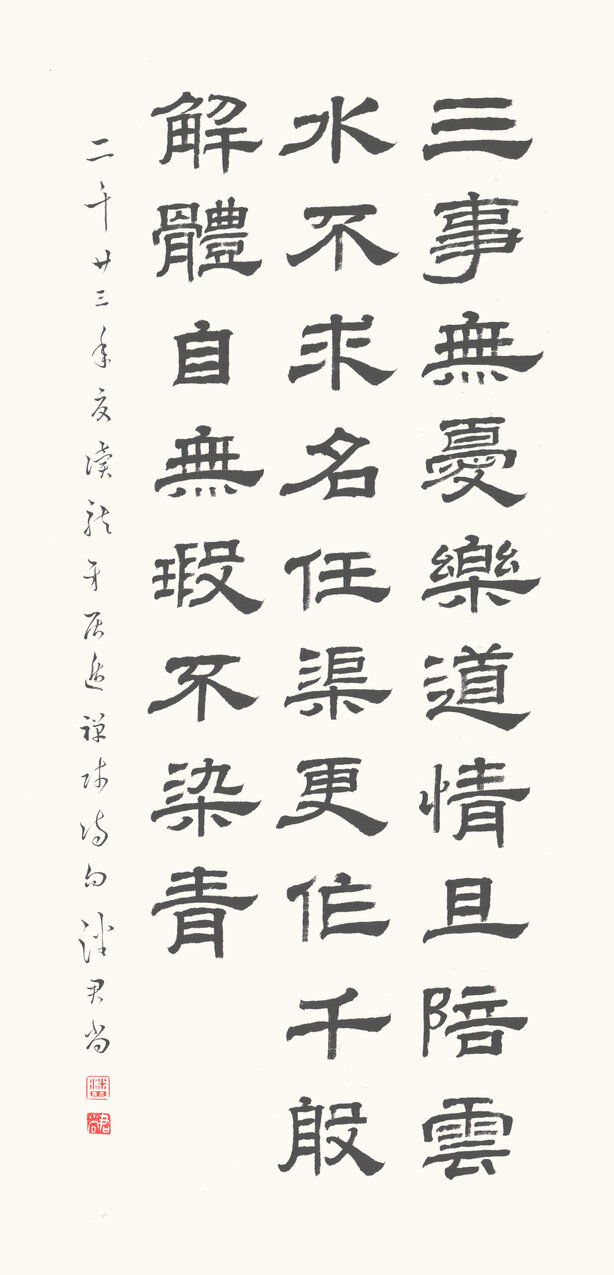 三事無憂樂道情且陪雲
水不求名任渠更作千般
解體自無瑕不染青
二千廿三年夏讀龍牙居遁禪師詩句 君尚
君尚